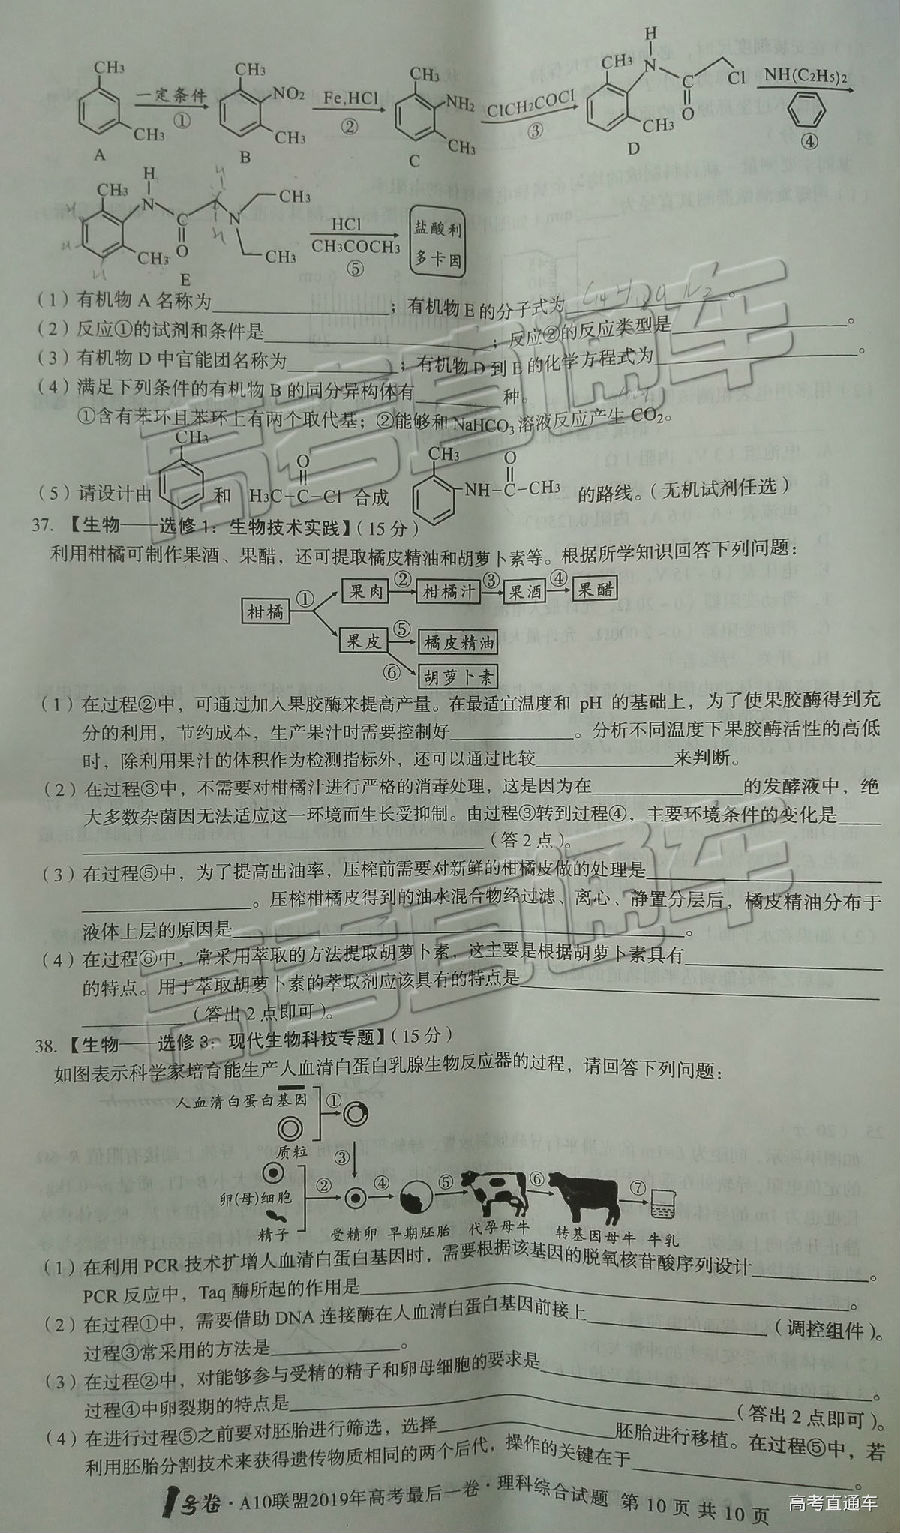 CH3 CH3 CH3 CH3 H N Cl
一定条件 NO2 Fe,HCl NH2 ClCH2COCl C O NH(C2H5)2
① ② ③ ④
CH3 CH3 CH3 CH3
A B C D
CH3 H N C O N CH3 CH3 CH3
HCl
CH3COCH3
⑤
盐酸利
多卡因
E
(1)有机物A名称为；有机物E的分子式为。
(2)反应①的试剂和条件是；反应②的反应类型是。
(3)有机物D中官能团名称为；有机物D到E的化学方程式为。
(4)满足下列条件的有机物B的同分异构体有种。
①含有苯环且苯环上有两个取代基；②能够和NaHCO3溶液反应产生CO2。
CH3 O CH3 O
(5)请设计由 和 H3C-C-Cl 合成 NH-C-CH3 的路线。(无机试剂任选)
37.【生物——选修1：生物技术实践】(15分)
利用柑橘可制作果酒、果醋，还可提取橘皮精油和胡萝卜素等。根据所学知识回答下列问题：
柑橘 ① 果肉 ② 柑橘汁 ③ 果酒 ④ 果醋
果皮 ⑤ 橘皮精油
⑥ 胡萝卜素
(1)在过程②中，可通过加入果胶酶来提高产量。在最适宜温度和 pH 的基础上，为了使果胶酶得到充
分的利用，节约成本，生产果汁时需要控制好。分析不同温度下果胶酶活性的高低
时，除利用果汁的体积作为检测指标外，还可以通过比较来判断。
(2)在过程③中，不需要对柑橘汁进行严格的消毒处理，这是因为在的发酵液中，绝
大多数杂菌因无法适应这一环境而生长受抑制。由过程③转到过程④，主要环境条件的变化是
(答2点)。
(3)在过程⑤中，为了提高出油率，压榨前需要对新鲜的柑橘皮做的处理是
。压榨柑橘皮得到的油水混合物经过滤、离心、静置分层后，橘皮精油分布于
液体上层的原因是。
(4)在过程⑥中，常采用萃取的方法提取胡萝卜素，这主要是根据胡萝卜素具有
的特点。用于萃取胡萝卜素的萃取剂应该具有的特点是
(答出2点即可)。
38.【生物——选修3：现代生物科技专题】(15分)
如图表示科学家培育能生产人血清白蛋白乳腺生物反应器的过程，请回答下列问题：
人血清白蛋白基因 ①
质粒
③
卵(母)细胞 ② ④ ⑤ ⑥ ⑦
精子 受精卵 早期胚胎 代孕母牛 转基因母牛 牛乳
(1)在利用PCR技术扩增人血清白蛋白基因时，需要根据该基因的脱氧核苷酸序列设计。
PCR反应中，Taq酶所起的作用是。
(2)在过程①中，需要借助DNA连接酶在人血清白蛋白基因前接上(调控组件)。
过程③常采用的方法是。
(3)在过程②中，对能够参与受精的精子和卵母细胞的要求是。
过程④中卵裂期的特点是(答出2点即可)。
(4)在进行过程⑤之前要对胚胎进行筛选，选择胚胎进行移植。在过程⑤中，若
利用胚胎分割技术来获得遗传物质相同的两个后代，操作的关键在于。
1号卷·A10联盟2019年高考最后一卷·理科综合试题 第10页共10页
高考直通车
高考直通车
高考直通车